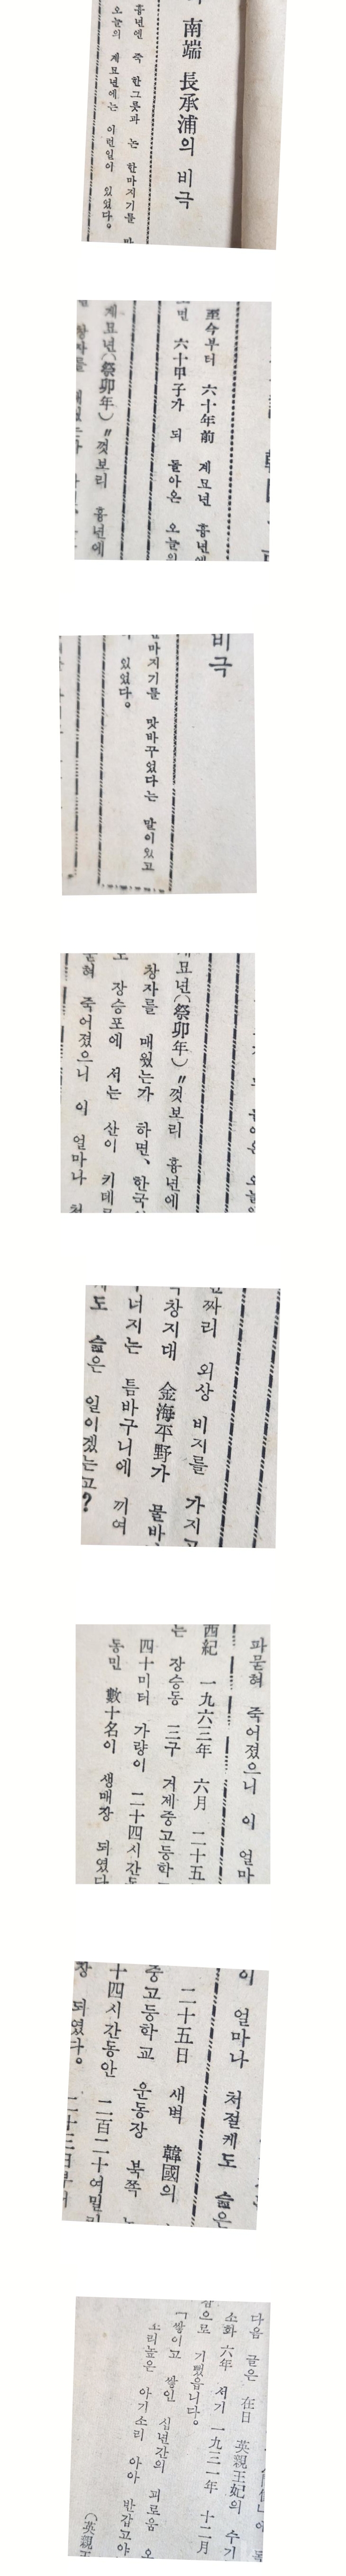 南端 長承浦의 비극
흉년엔 죽 한그릇과 논 한마지기를
오늘의 계묘년에는 이런일이 있었다。
至今부터 六十年前 계묘년 흉년에
六十甲子가 되 돌아온 오늘의
계묘년(祭卯年) 〃껏보리 흉년에
비극
마지기를 맛바꾸었다는 말이있고
있었다。
묘년(祭卯年) 〃껏보리 흉년에
창자를 매웠는가 하면、한국
장승포에 서는 산이 키데
묻혀 죽어졌으니 이 얼마나
짜리 외상 비지를 가지고
창지대 金海平野가 물바
너지는 틈바구니에 끼여
도 슬은 일이겠는고?
파묻혀 죽어졌으니 이 얼마
西紀 一九六三年 六月 二十五
는 장승동 三구 거제중고등학
四十미터 가량이 二十四시간
동민 數十名이 생매장 되였다
이 얼마나 처절케도 슬은
二十五日 새벽 韓國의
중고등학교 운동장 북쪽
十四시간동안 二百二十여밀리
장 되였다。 二十三日부터
다음 글은 在日 英親王妃의 수기
소화 六年 서기 一九三一年 十二月
으로 기뻤읍니다。
「쌓이고 쌓인 십년간의 괴로움
소리높은 아기소리 아아 반갑고야
(英親王